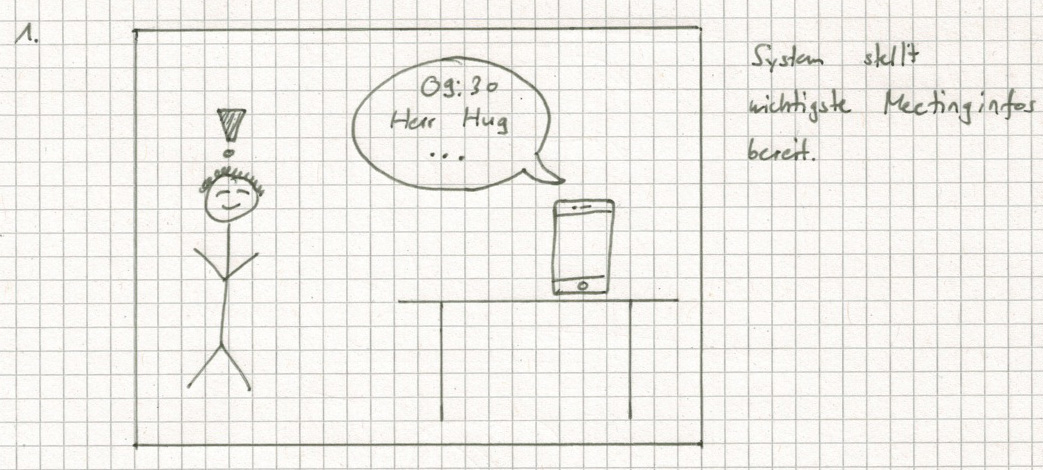 1.
09:30
Herr Hug
...
System stellt
wichtigste Meetinginfos
bereit.